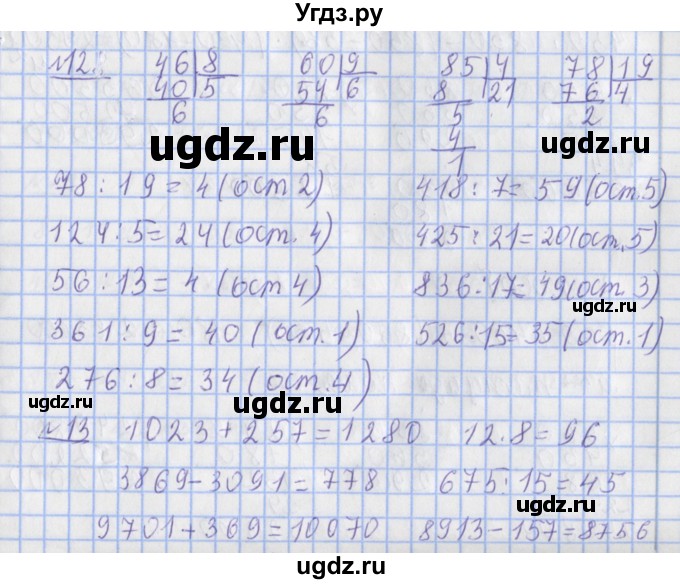 Угдз.ру
№12. 46|8 60|9 85|4 78|19
40 5 54 6 8 21 76 4
6 6 5 2
4
1
ugdz.ru
ugdz.ru
78 : 19 = 4 (ост 2) 418 : 7 = 59 (ост. 5)
124 : 5 = 24 (ост. 4) 425 : 21 = 20 (ост. 5)
56 : 13 = 4 (ост 4) 836 : 17 = 49 (ост. 3)
ugdz.ru
361 : 9 = 40 (ост. 1) 526 : 15 = 35 (ост. 1)
ugdz.ru
276 : 8 = 34 (ост. 4)
ugdz.ru
№13 1023 + 257 = 1280 12 . 8 = 96
3869 - 3091 = 778 675 : 15 = 45
9701 + 369 = 10070 8913 - 157 = 8756
ugdz.ru
ugdz.ru